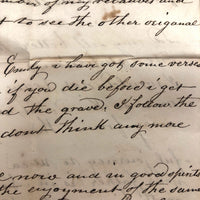 of my relatives and
t to see the other origanal
Emily i have got some verses
if you die before i get
d the grave; I follow the
dont think any more
e now and in good spirits
the enjoyment of the same